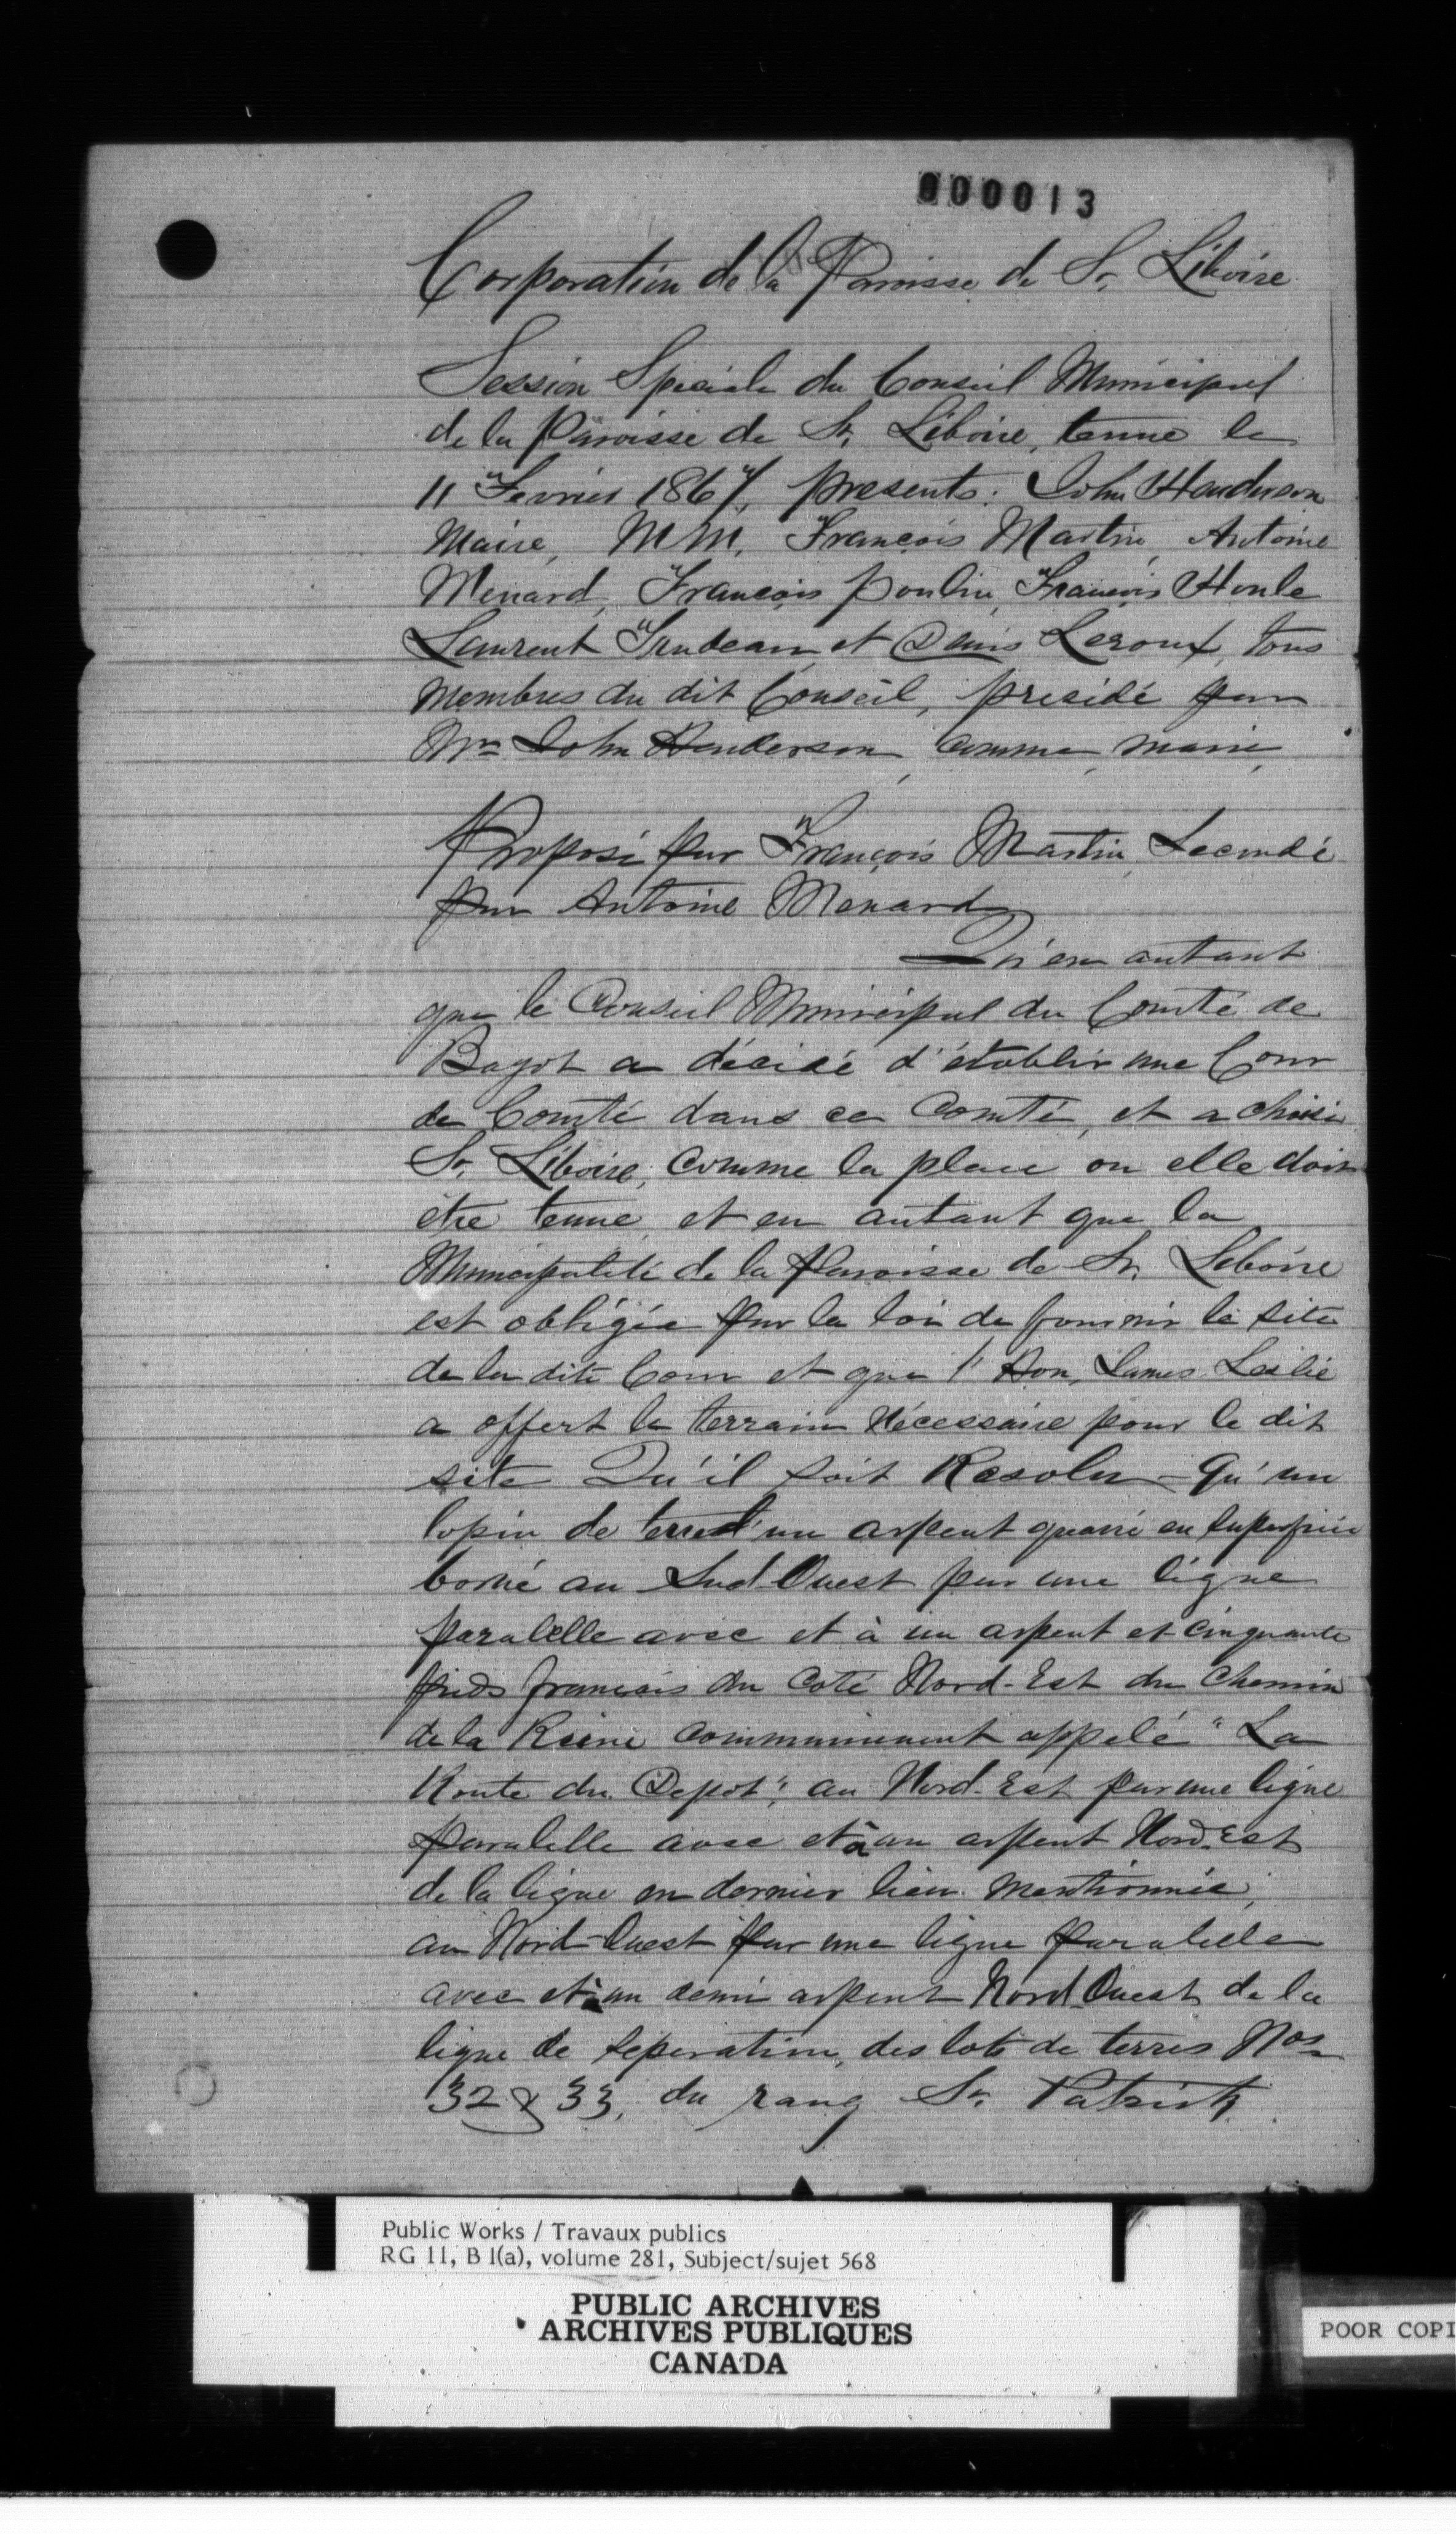 000013
Corporation de la Paroisse de St. Liboire
Session Speciale du Conseil Municipal
de la Paroisse de St. Liboire, tenue le
11 Fevrier 1867, presents: John Henderson
Maire, MM. François Martin, Antoine
Menard, François Poulin, François Houle
Laurent Trudeau et Denis Leroux, tous
membres du dit Conseil, presidé par
Mr John Henderson comme maire,
Proposé par François Martin, Secondé
par Antoine Menard
Qu'en autant
que le Conseil Municipal du Comté de
Bagot a décidé d'établir une Cour
de Comté dans ce Comté, et a choisi
St. Liboire, comme la place ou elle doit
etre tenue, et en autant que la
Municipalité de la Paroisse de St. Liboire
est obligée par la loi de fournir le site
de la dite Cour et que l'Hon. James Leslie
a offert le terrain nécessaire pour le dit
site Qu'il soit Resolu - Qu'un
lopin de terre d'un arpent quarré en superficie
borné au Sud-Ouest par une ligne
paralelle avec et à un arpent et cinquante
pieds français du coté Nord-Est du chemin
de la Reine communement appelé "La
Route du Depot", au Nord-Est par une ligne
paralelle avec et à un arpent Nord-Est
de la ligne en dernier lieu mentionnée,
au Nord-Ouest par une ligne paralelle
avec et à un demi arpent Nord-Ouest de la
ligne de seperation, des lots de terres Nos
32 & 33, du rang St. Patrick
Public Works / Travaux publics
RG 11, B 1(a), volume 281, Subject/sujet 568
PUBLIC ARCHIVES
ARCHIVES PUBLIQUES
CANADA
POOR COPI